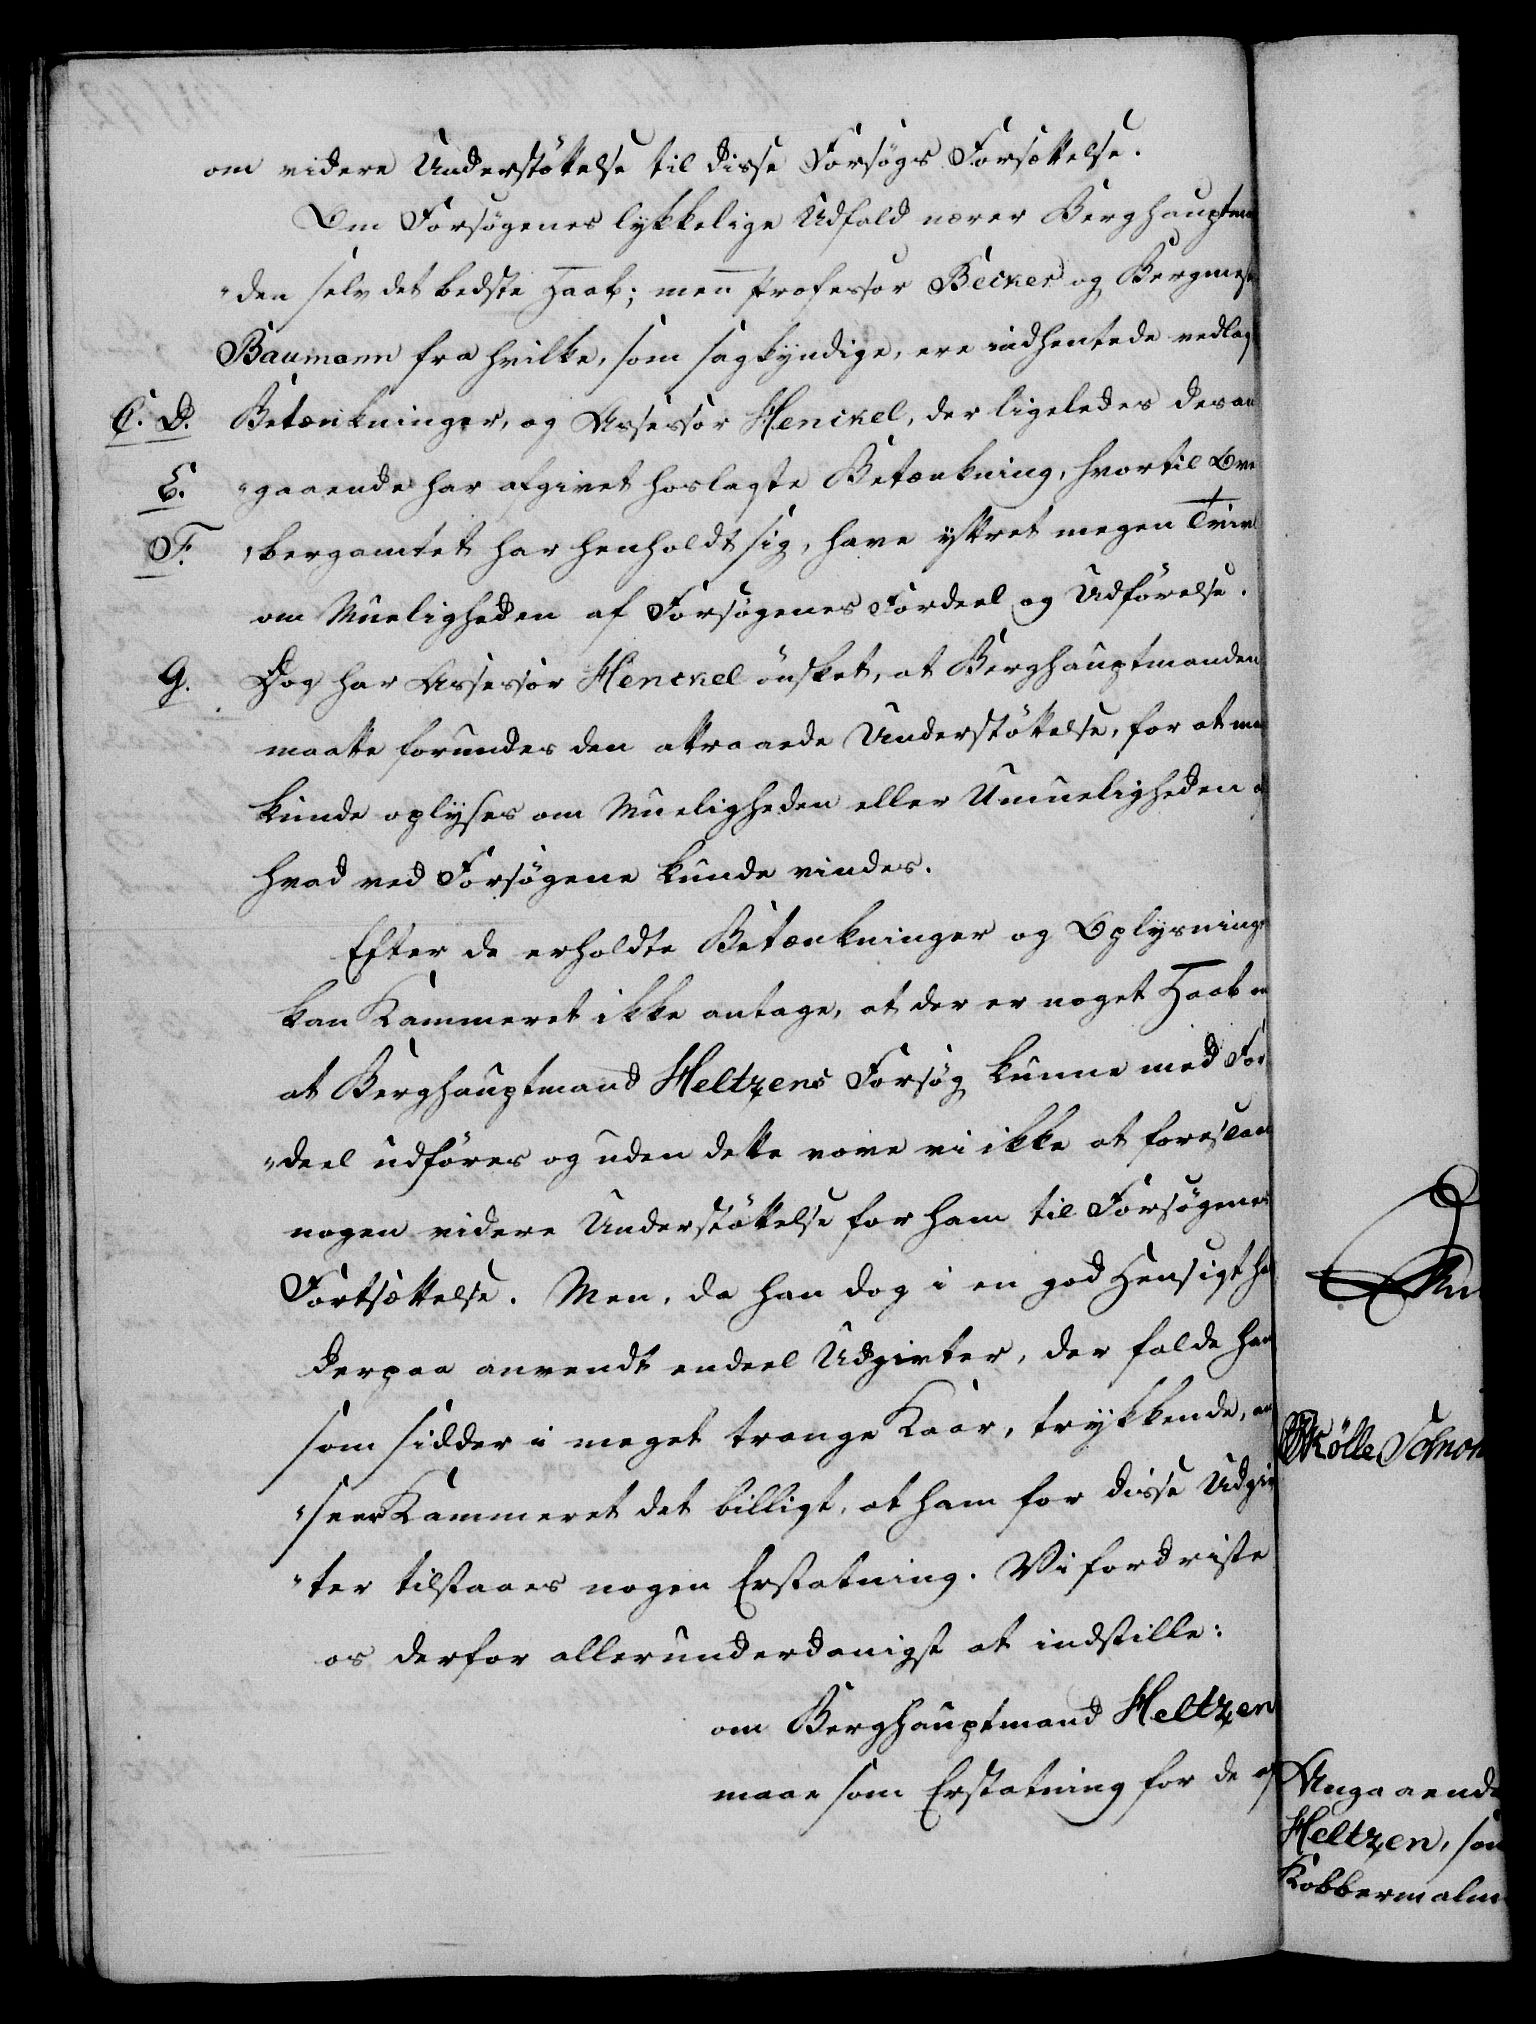 om videre Understöttelse til disse Forsögs Forsættelse.
Om Forsögenes lykkelige Udfald nærer Berghauptman
"den selv det bedste Haab; men Professor Becker og Bergmest
Baumann fra hvilke, som sagkyndige, ere indhentede vedlag
C. D. Betænkninger, og Assessor Henckel, der ligeledes desan
E. "gaaende har afgivet hoslagte Betænkning, hvortil Ove
F. "bergamtet har henholdt sig, have yttret megen Tvivl
om Mueligheden af Forsögenes Fordeel og Udförelse.
G. Dog har Assessor Henckel önsket, at Berghauptmanden
maatte forundes den attraaede Understöttelse, for at man
kunde oplyses om Mueligheden eller Umueligheden a
hvad ved Forsögene kunde vindes.
Efter de erholdte Betænkninger og Oplysning
kan Kammeret ikke antage, at der er noget Haab om
at Berghauptmand Heltzens Forsög kunne med For
"deel udföres og uden dette vove vi ikke at foreslaae
nogen videre Understöttelse for ham til Forsögenes
Fortsættelse. Men, da han dog i en god Hensigt ha
derpaa anvendt endeel Udgivter, der falde ham
som sidder i meget trange Kaar, trykkende, an
"seer Kammeret det billigt, at ham for disse Udgiv
"ter tilstaaes nogen Erstatning. Vi fordriste
os derfor allerunderdanigst at indstille:
om Berghauptmand Heltzen
maae som Erstatning for de af
Angaaende
Heltzen, som
Kobbermalm